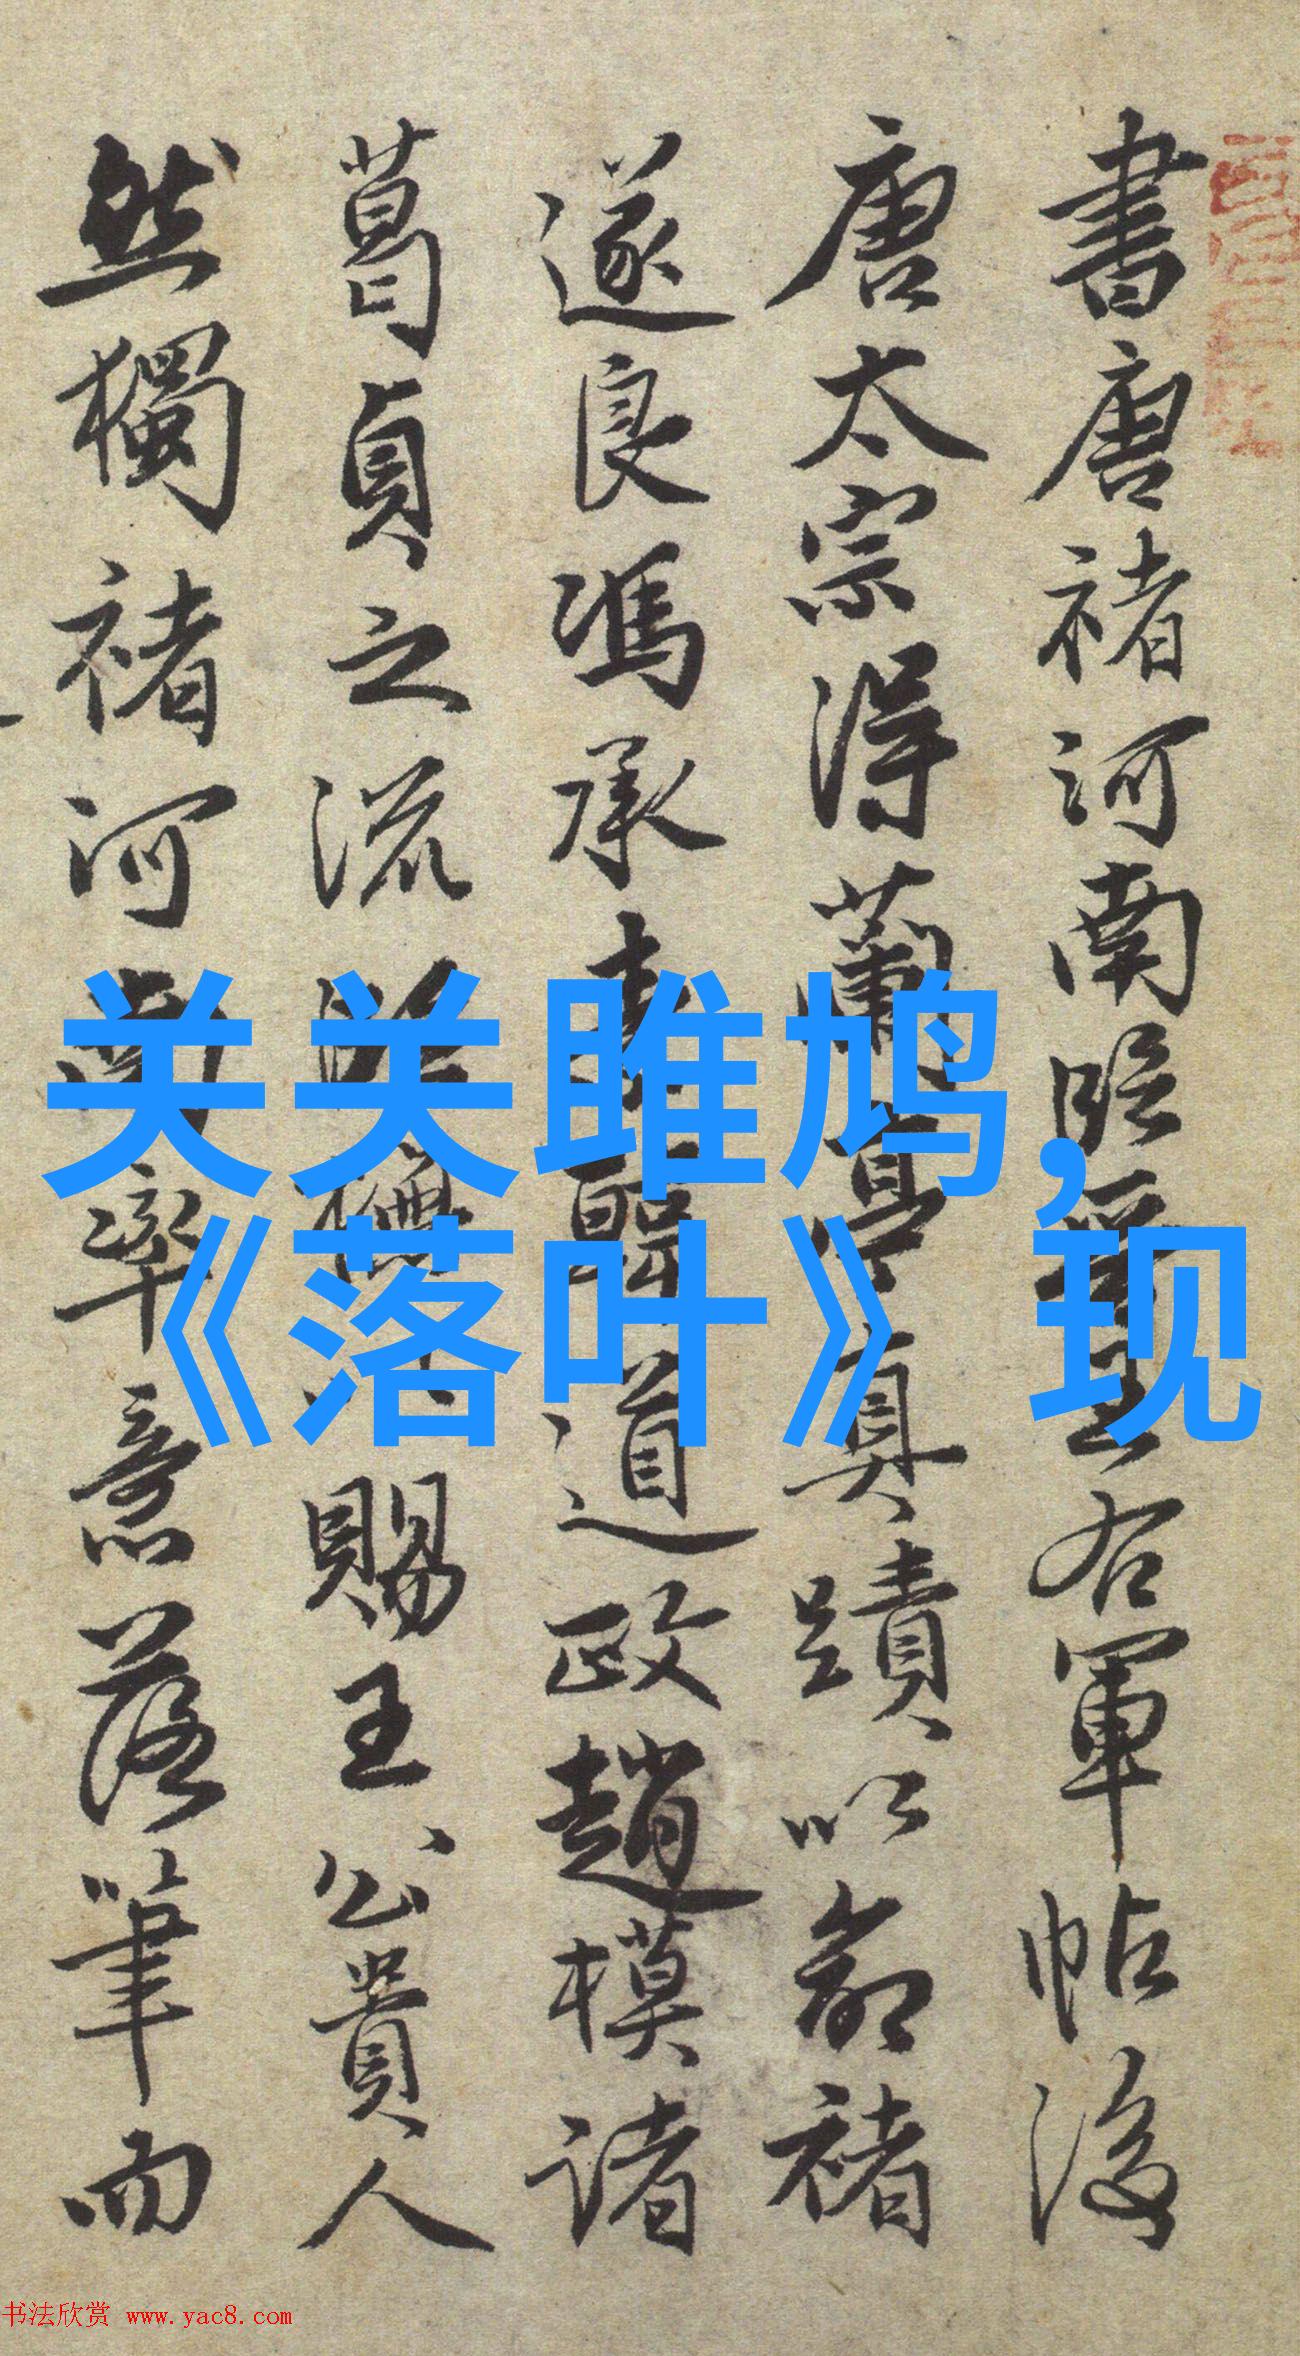 書唐褚河南臨晉王右軍帖後
唐太宗得蘭亭真蹟以命褚
遂良馮承素韓道政趙模諸
葛貞之流臨賜王公貴人
然獨褚河南率意落筆而
关关雎鸠，
《落叶》现
书法欣赏 www.yac8.com